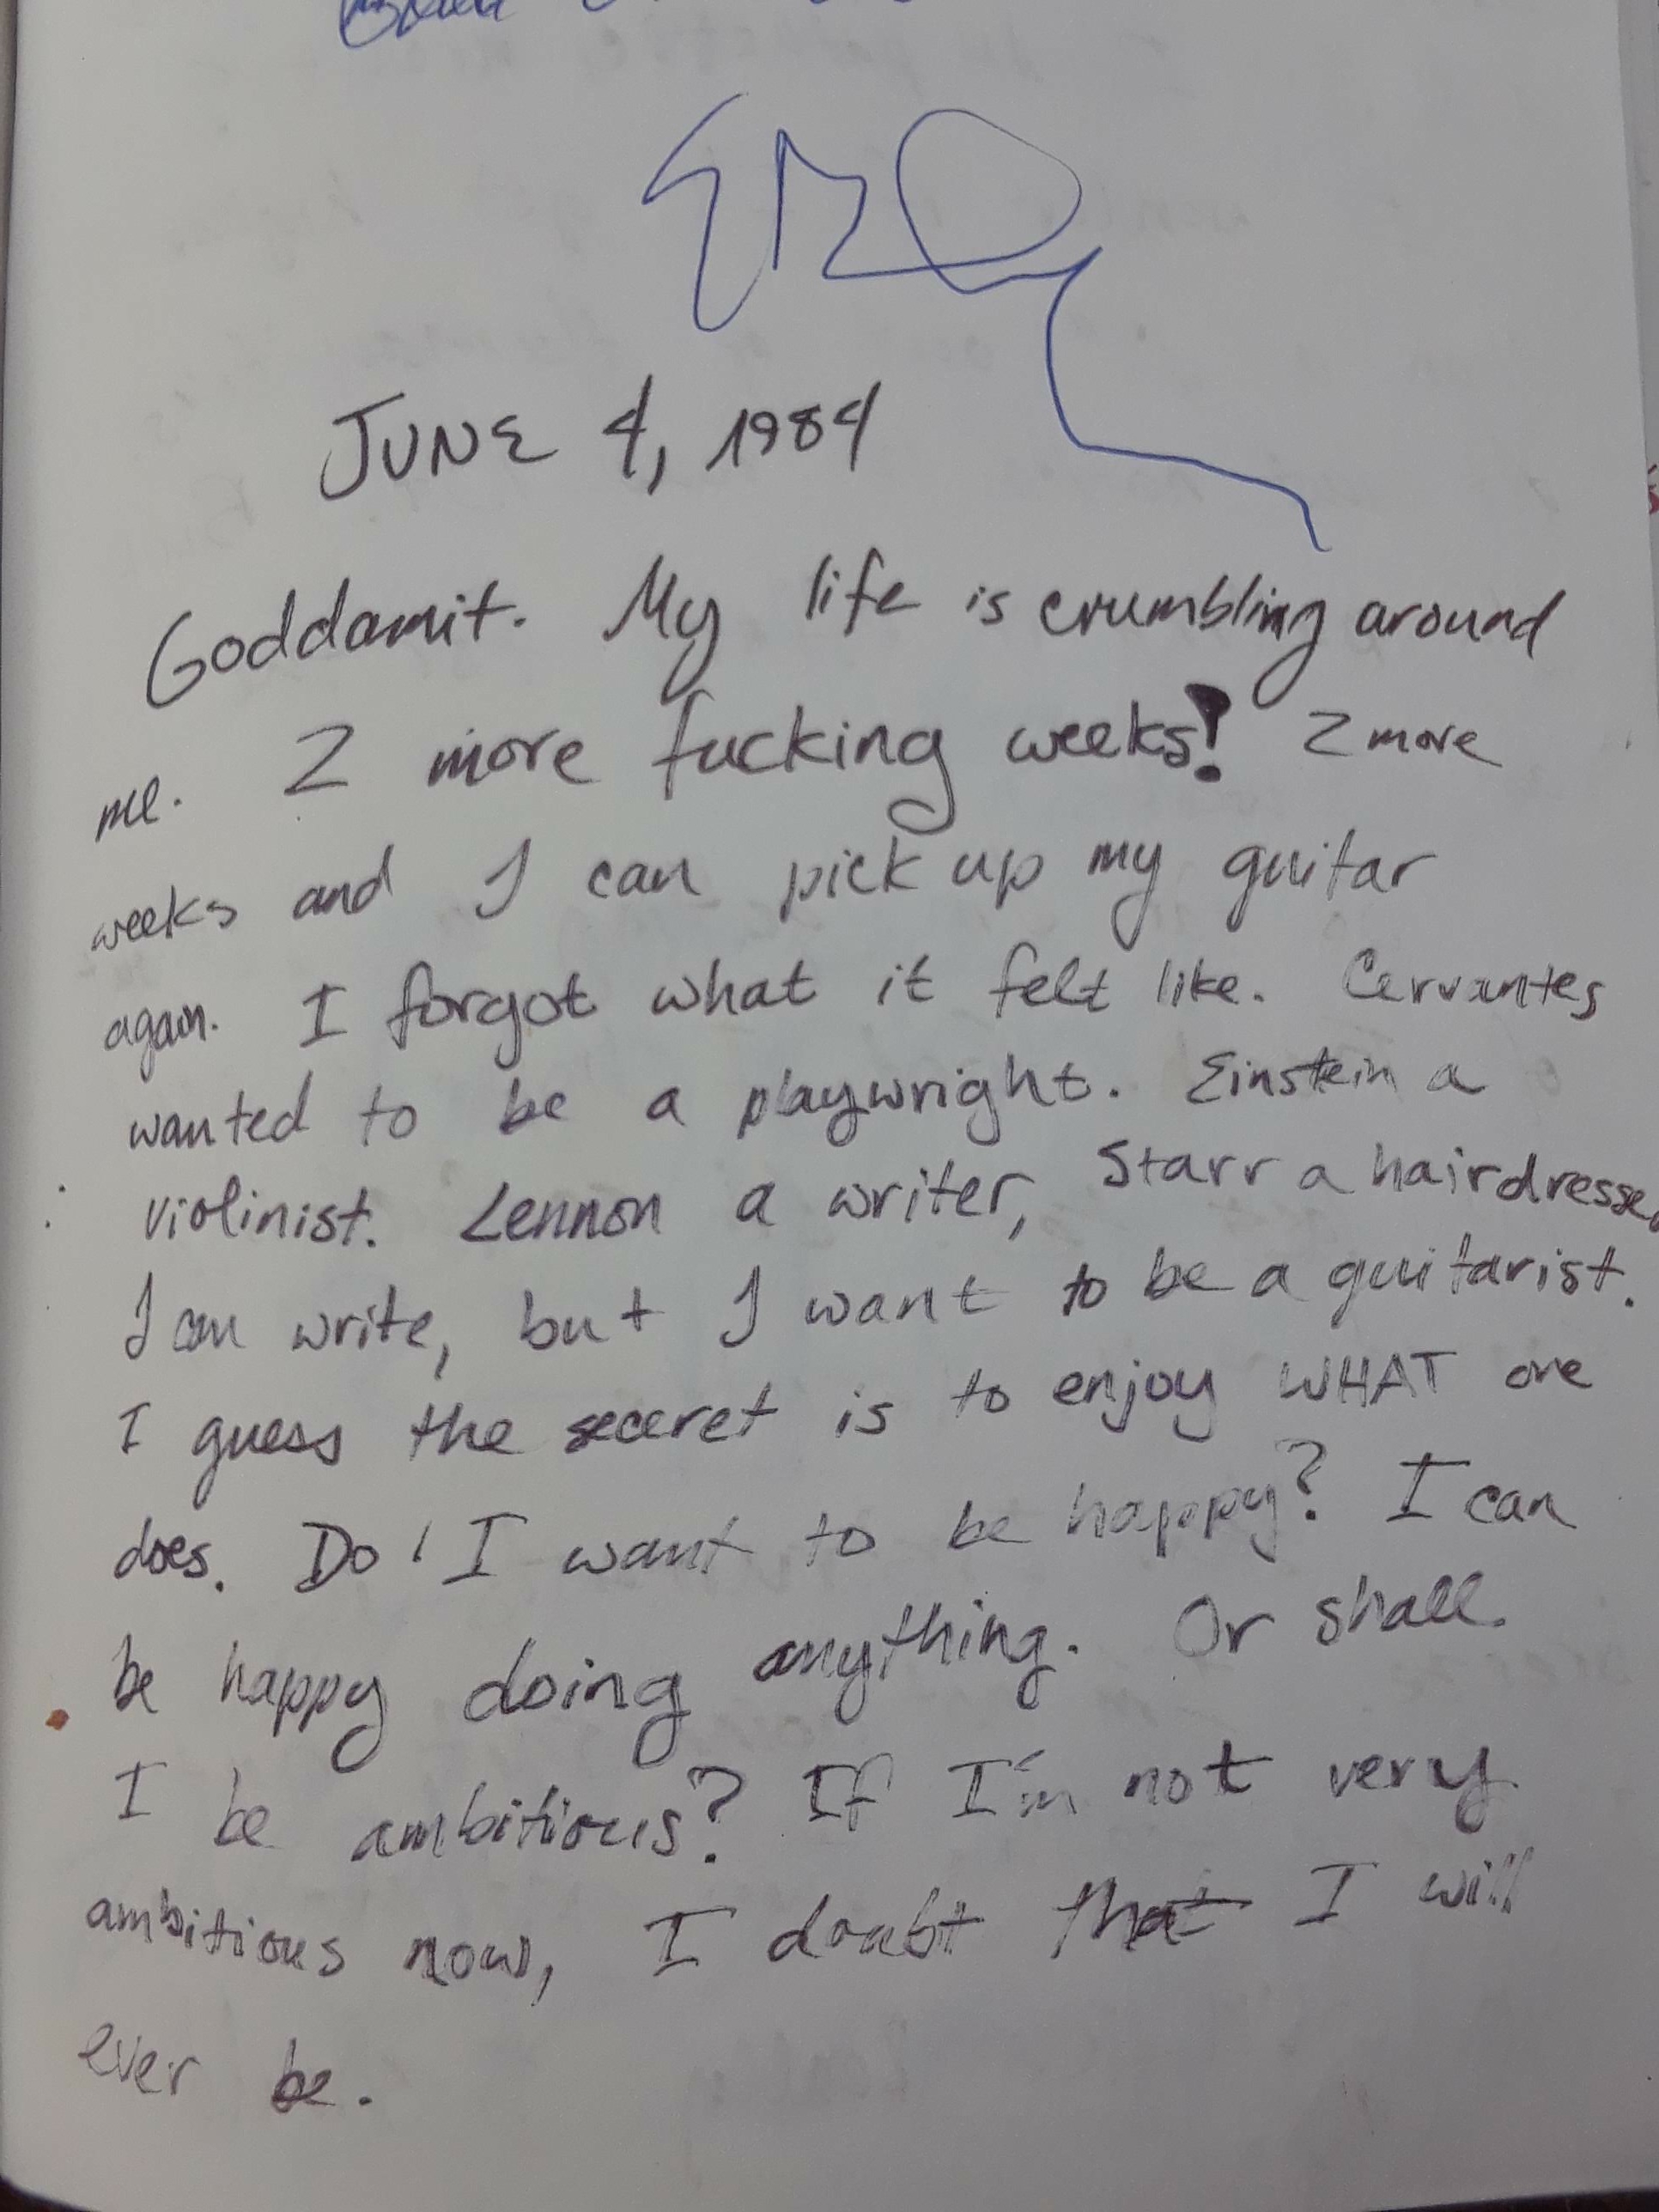 JUNE 4, 1984
Goddamit. My life is crumbling around
me. 2 more fucking weeks! 2 more
weeks and I can pick up my guitar
again. I forgot what it felt like. Cervantes
wanted to be a playwright. Einstein a
violinist. Lennon a writer, Starr a hairdresser
I can write, but I want to be a guitarist.
I guess the seceret is to enjoy WHAT one
does. Do I want to be happy? I can
be happy doing anything. Or shall
I be ambitious? If I'm not very
ambitious now, I doubt that I will
ever be.